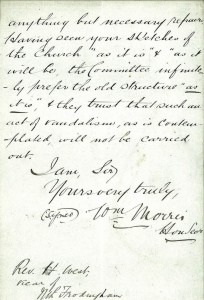 anything but necessary repairs
Having seen your sketches of
the Church "as it is" & "as it
will be, the Committee infinite-
ly prefer the old structure "as
it is", & they trust that such an
act of vandalism, as is contem-
plated, will not be carried
out.
I am, Sir,
Yours very truly,
(signed) Wm Morris
Hon Secr
Rev. H. West,
vicar of
Nth Frodingham